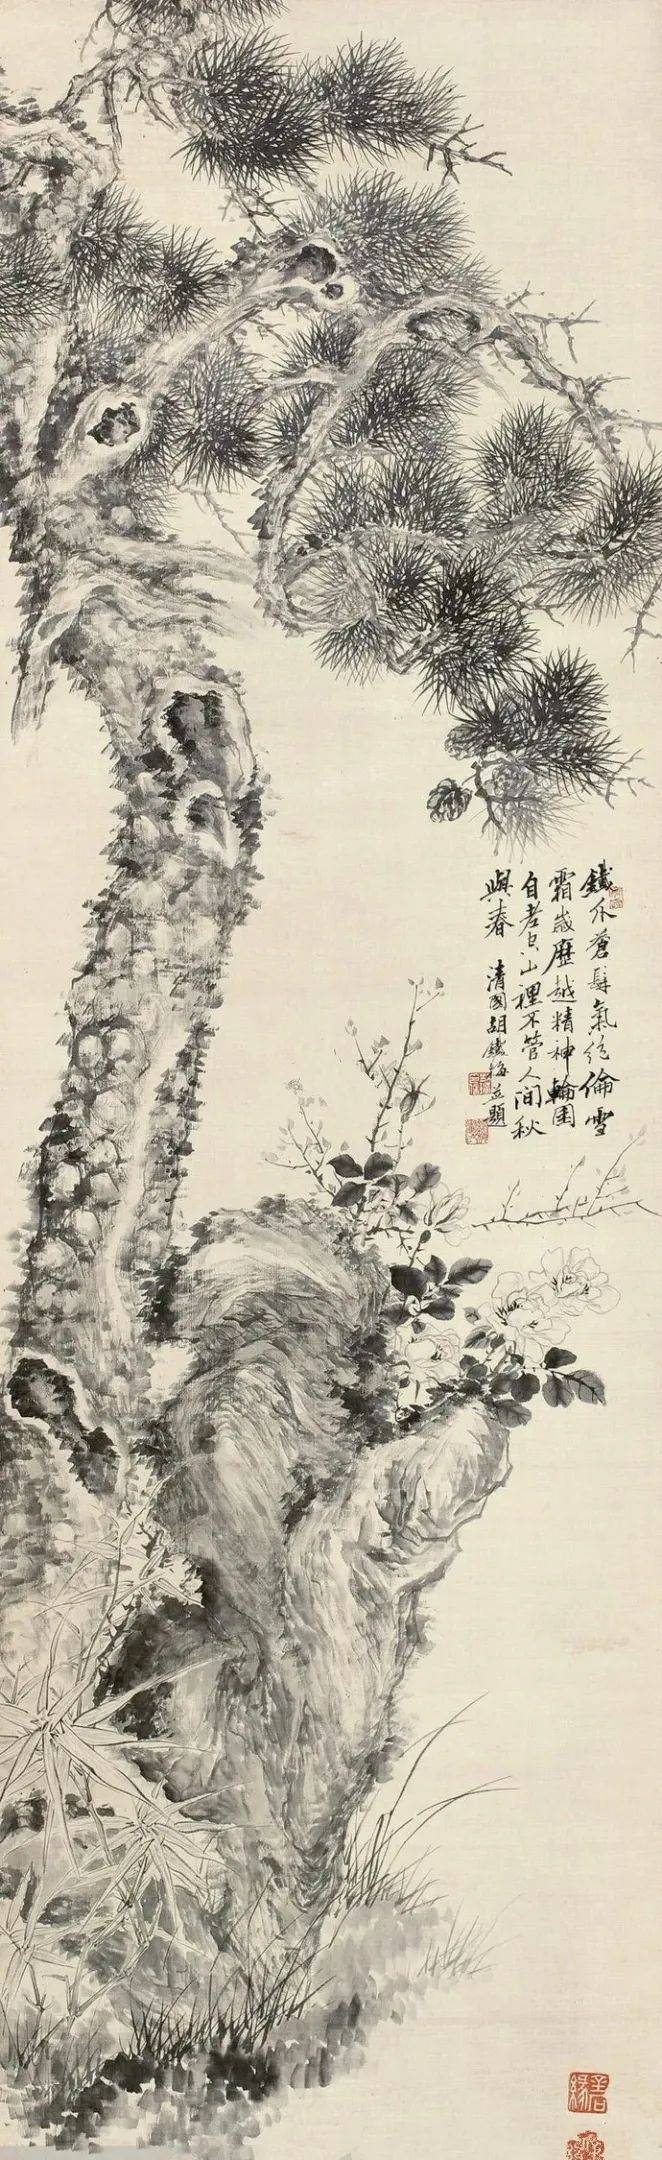 鐵爪蒼髯氣絕倫雪
霜歲歷越精神輪囷
自老空山裡不管人間秋
與春 清國胡鐵梅並題